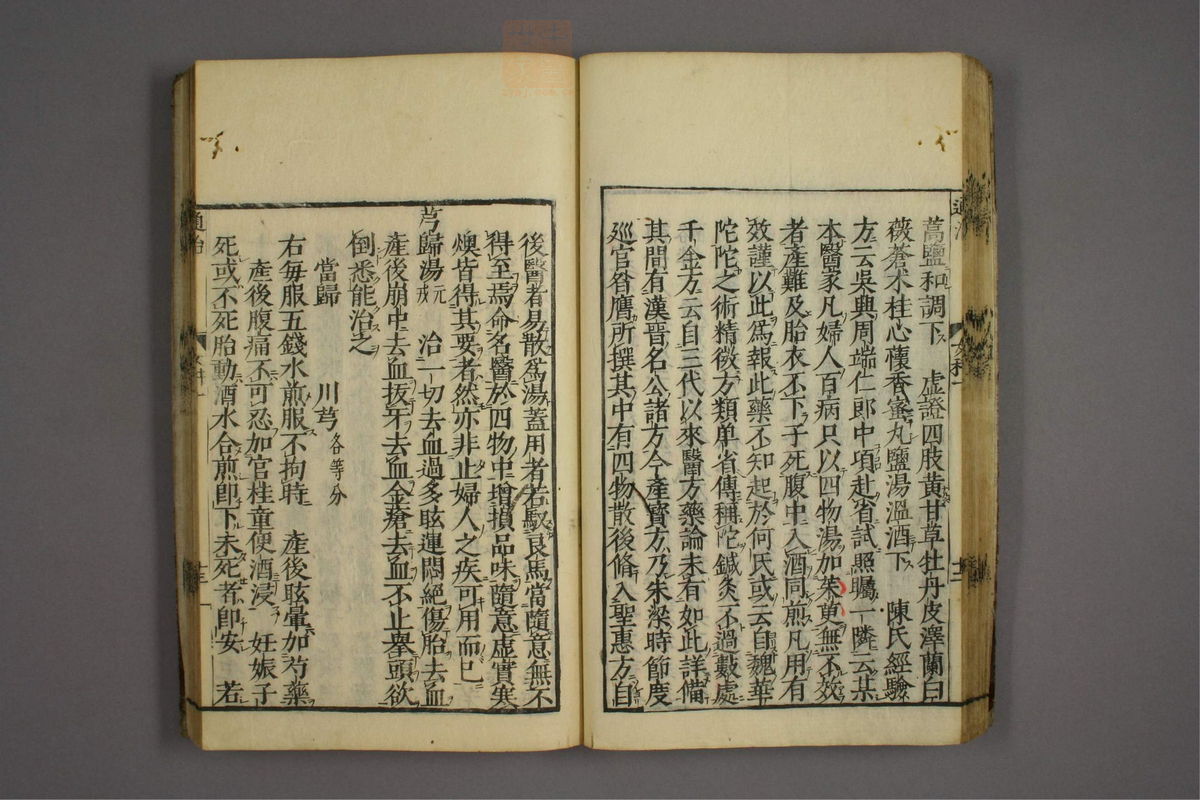 蒿鹽和調下　虛證四肢黃甘草牡丹皮澤蘭白
薇蒼朮桂心櫰香蜜丸鹽湯溫酒下　陳氏經驗
方云吳興周端仁郎中項赴省試照矚一隣云某
本醫家凡婦人百病只以四物湯加茱更無不效
者產難及胎衣不下子死腹中入酒同煎凡用有
效謹以此爲報此藥不知起於何氏或云自魏華
陀陀之術精微方類单省傳稱陀鍼灸不過數處
千金方云自三代以來醫方藥論未有如此詳備
其間有漢晉名公諸方今產寶方乃朱梁時節度
廵官昝鷹所撰其中有四物散後脩入聖惠方自
後醫者易散爲湯蓋用者若馭良馬當隨意無不
得至焉命名醫於四物中增損品味隨意虛實寒
燠皆得其要者然亦非止婦人之疾可用而已
芎歸湯 元戎 治一切去血過多眩運悶絕傷胎去血
產後崩中去血拔牙去血金瘡去血不止擧頭欲
倒悉能治之
當歸　川芎 各等分
右每服五錢水煎服不拘時　產後眩暈加芍藥
產後腹痛不可忍加官桂童便酒浸　妊娠子
死或不死胎動酒水合煎卽下未死者卽安　若
通治
女科一
十二
通治
女科一
十三